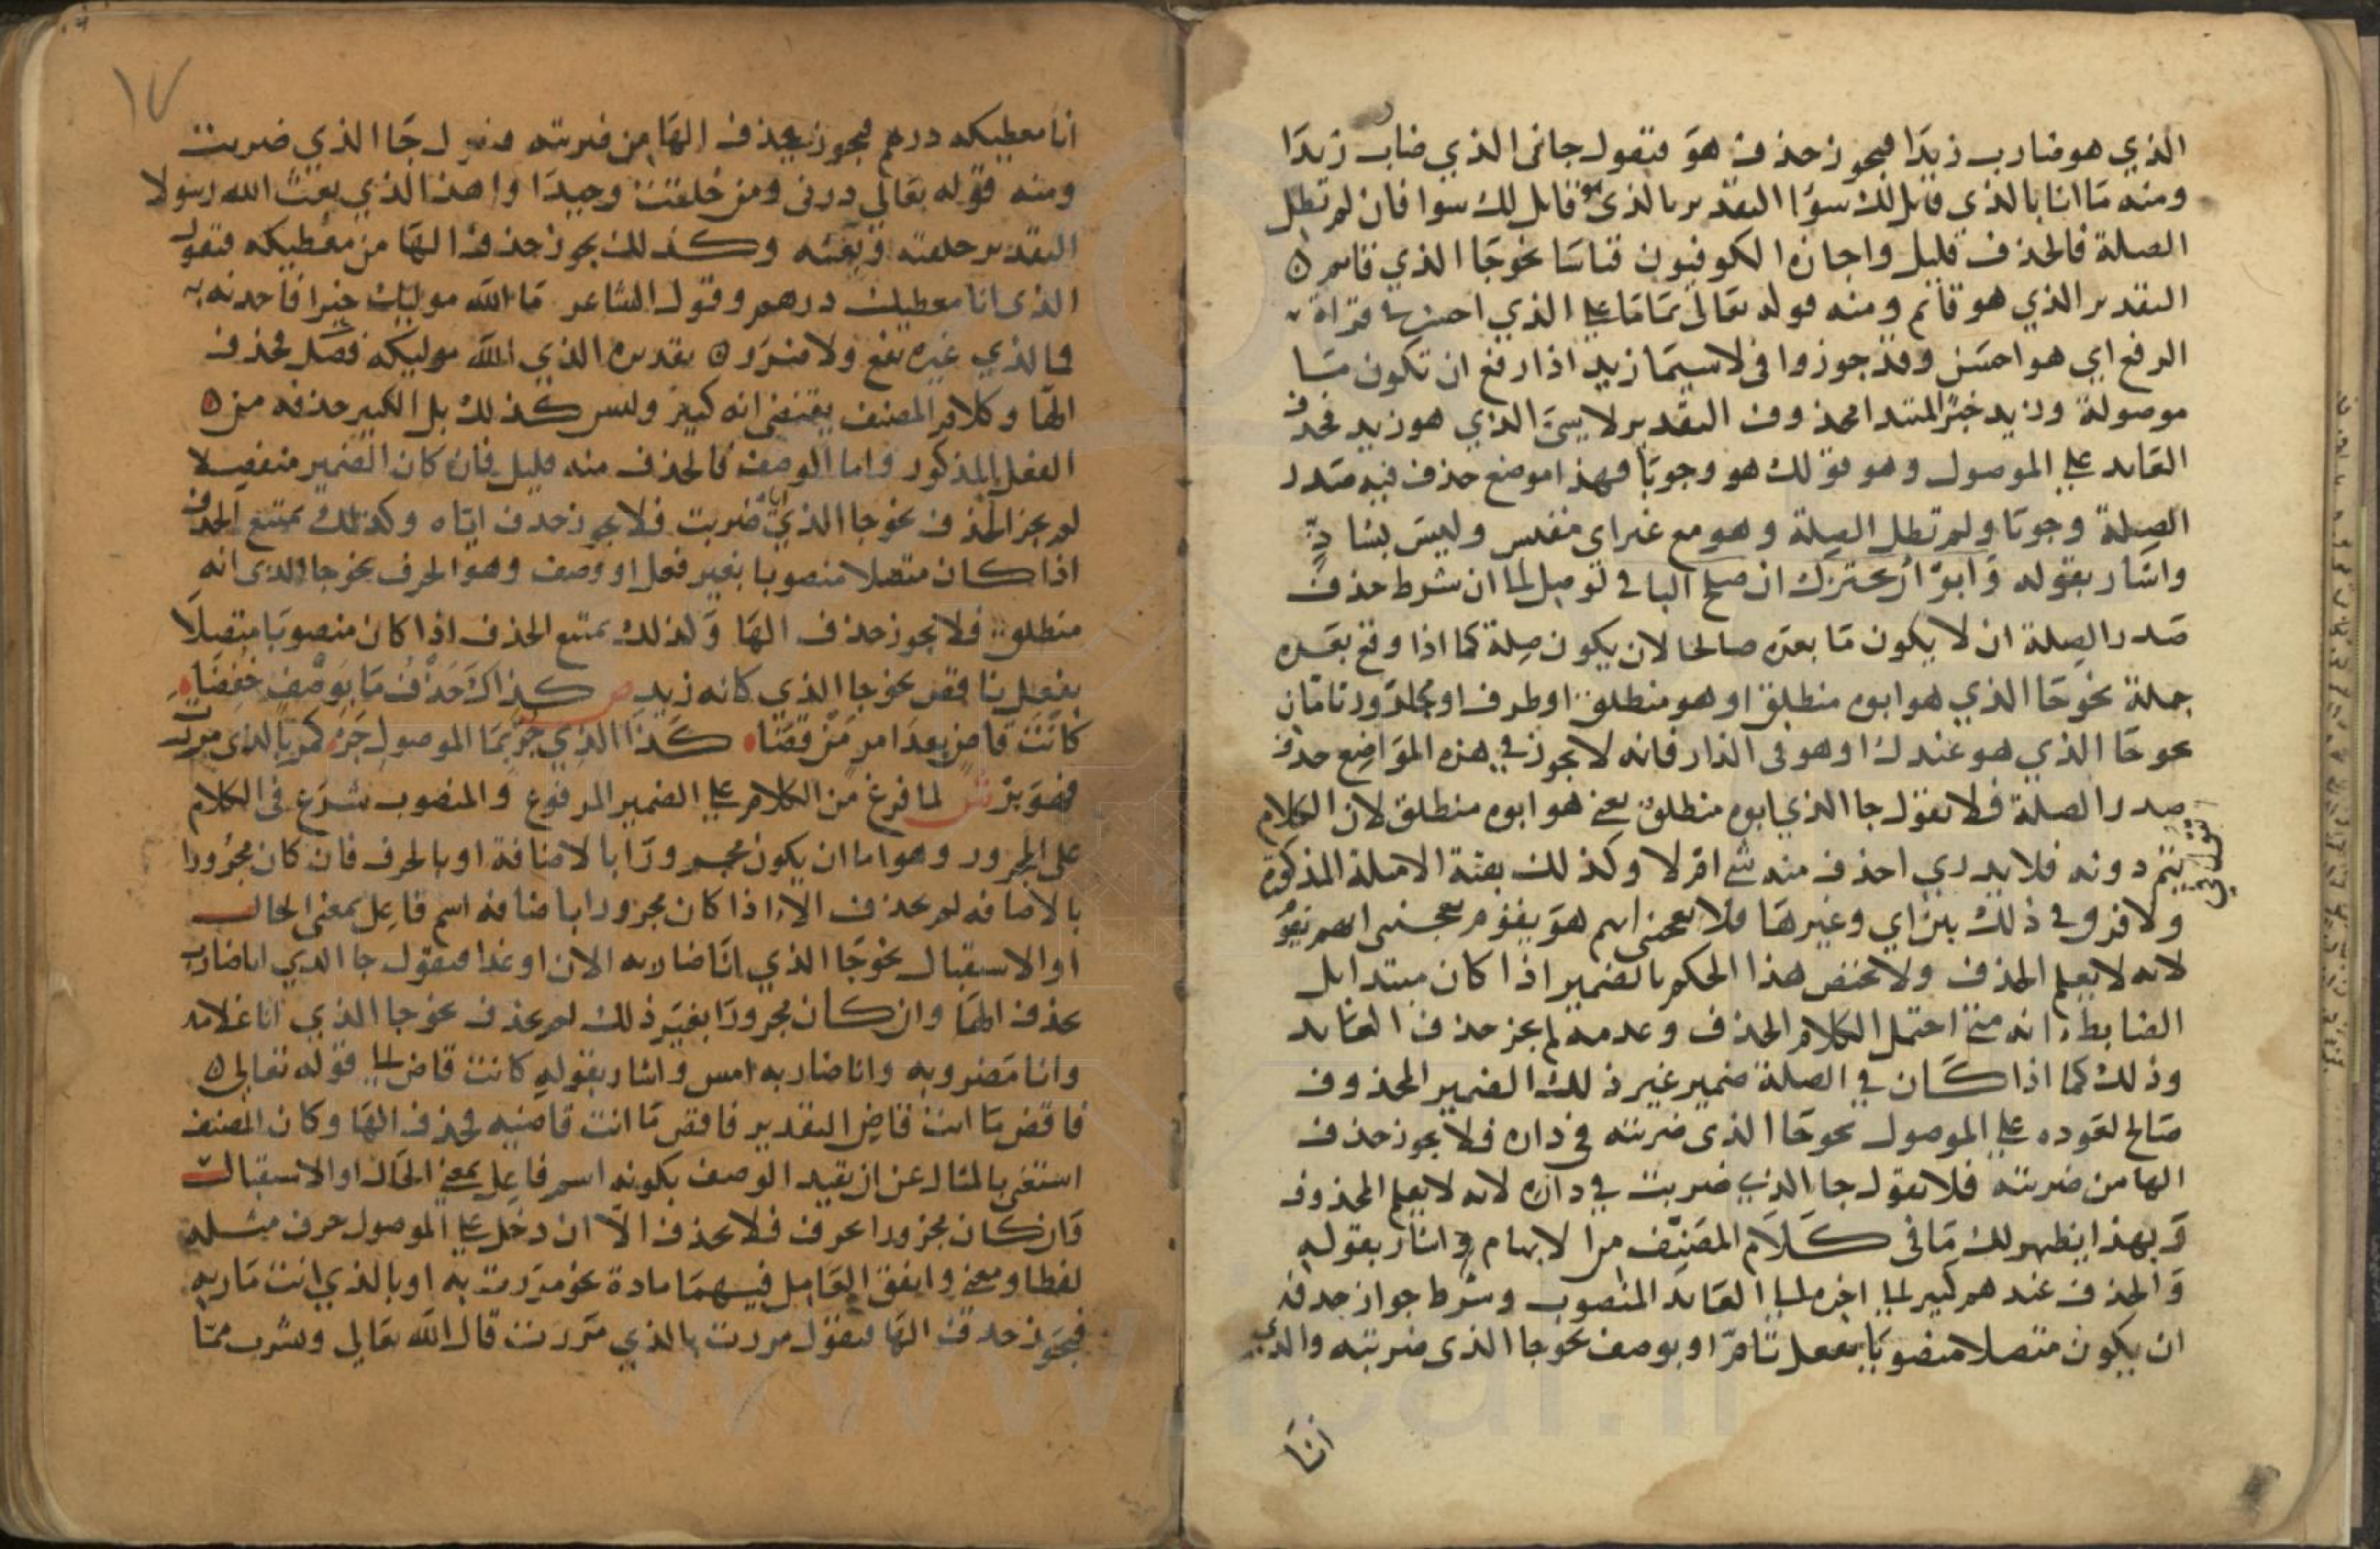 الذي هو ضارب زيدا فيجوز حذف هو فتقول جاني الذي ضارب زيدا
ومنه ما انا بالذي قايل لك سوا التقدير بالذي هو قايل لك سوا فان لم تطل
الصلة فالحذف قليل واجازه الكوفيون قياسا نحو جا الذي قايم
التقدير الذي هو قايم ومنه قوله تعالى تماما على الذي احسن في قراة
الرفع اي هو احسن وقد جوزوا في لاسيما زيد اذا رفع ان تكون ما
موصولة وزيد خبر المبتدا محذوف التقدير لاسي الذي هو زيد فحذف
العايد على الموصول وهو قولك هو وجوبا فهذا موضع حذف فيه صدر
الصلة وجوبا ولم تطل الصلة وهو مع غير اي مقيس وليس بشاذ
واشار بقوله وابوا ان يختزل ان صلح الباقي لوصل لما ان شرط حذف
صدر الصلة ان لا يكون ما بعده صالحا لان يكون صلة كما اذا وقع بعده
جملة نحو جا الذي هو ابوه منطلق او هو منطلق او ظرف او مجرور تامان
نحو جا الذي هو عندك او هو في الدار فانه لا يجوز في هذه المواضع حذف
صدر الصلة فلا تقول جا الذي ابوه منطلق يعني هو ابوه منطلق لان الكلام
يتم دونه فلا يدري احذف منه شي ام لا وكذلك بقية الامثلة المذكورة
ولا فرق في ذلك بين اي وغيرها فلا يعجبني ايهم هو يقوم يعجبني ايهم يقوم
لانه لا يعلم الحذف ولا يختص هذا الحكم بالضمير اذا كان مبتدا بل
الضابط انه متى احتمل الكلام الحذف وعدمه لم يجز حذف العايد
وذلك كما اذا كان في الصلة ضمير غير ذلك الضمير المحذوف
صالح لعوده على الموصول نحو جا الذي ضربته في داره فلا يجوز حذف
الها من ضربته فلا تقول جا الذي ضربت في داره لانه لا يعلم المحذوف
وبهذا يظهر لك ما في كلام المصنف من الابهام واشار بقوله
والحذف عندهم كثير منجلي الى اخره الى العايد المنصوب وشرط جواز حذفه
ان يكون متصلا منصوبا بفعل تام او بوصف نحو جا الذي ضربته والذي
انا
١٧
انا معطيكه درهم فيجوز حذف الها من ضربته فتقول جا الذي ضربت
ومنه قوله تعالى ذرني ومن خلقت وحيدا واهذا الذي بعث الله رسولا
التقدير خلقته وبعثه وكذلك يجوز حذف الها من معطيكه فتقول
الذي انا معطيك درهم وقول الشاعر ما الله موليك خير فاحمدنه به
فما لذي غيره نفع ولا ضرر تقديره الذي الله موليكه فضل فحذف
الها وكلام المصنف يقتضي انه كثير وليس كذلك بل الكثير حذفه من
الفعل المذكور واما الوصف فالحذف منه قليل فان كان الضمير منفصلا
لم يجز الحذف نحو جا الذي اياه ضربت فلا يجوز حذف اياه وكذلك يمتنع الحذف
اذا كان متصلا منصوبا بغير فعل او وصف وهو الحرف نحو جا الذي انه
منطلق فلا يجوز حذف الها وكذلك يمتنع الحذف اذا كان منصوبا متصلا
بفعل ناقص نحو جا الذي كانه زيد ص كذاك حذف ما بوصف خفضا
كانت قاض بعد امر من قضا كذا الذي جر بما الموصول جر كمر بالذي مررت
فهو بر ش لما فرغ من الكلام على الضمير المرفوع والمنصوب شرع في الكلام
على المجرور وهو اما ان يكون مجرورا بالاضافة او بالحرف فان كان مجرورا
بالاضافه لم يحذف الا اذا كان مجرورا باضافه اسم فاعل بمعنى الحال
او الاستقبال نحو جا الذي انا ضاربه الان او غدا فتقول جا الذي انا ضارب
بحذف الها وان كان مجرورا بغير ذلك لم يحذف نحو جا الذي انا غلامه
وانا مضروبه وانا ضاربه امس واشار بقوله كانت قاض الى قوله تعالى
فاقض ما انت قاض التقدير فاقض ما انت قاضيه فحذف الها وكان المصنف
استغنى بالمثال عن ان يقيد الوصف بكونه اسم فاعل بمعنى الحال او الاستقبال
وان كان مجرورا بحرف فلا يحذف الا ان دخل على الموصول حرف مثله
لفظا ومعنى واتفق العامل فيهما مادة نحو مررت به او بالذي انت مار به
فيجوز حذف الها فتقول مررت بالذي مررت قال الله تعالى ويشرب مما